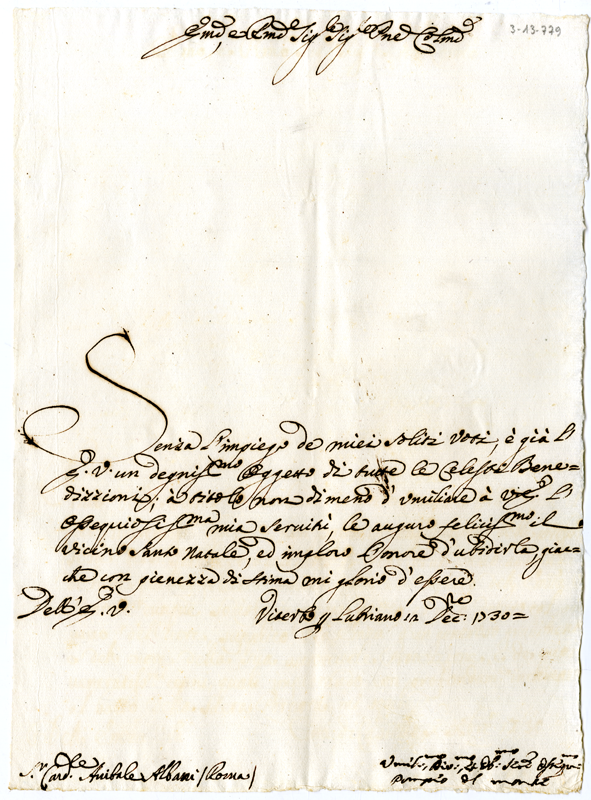 3-13-779
Em̃o, e Rmo Sig.r Sig.r Pne Colmo
Senza l'impiego de miei soliti voti, è già l'
E. V. un degnissmo oggetto di tutte le Celesti Bene=
dizzioni; à titolo non dimeno d'umiliare à V. E. l'
ossequiosissma mia servitù, le auguro felicissmo il
vicino Santo Natale, ed imploro l'onore d'ubidirla, giac=
che con pienezza di stima mi glorio d'essere
Dell'E. V.
Viterbo p Lubriano 12 Dec: 1730=
S.r Card.le Anibale Albani (Roma)
Pompeo del monte